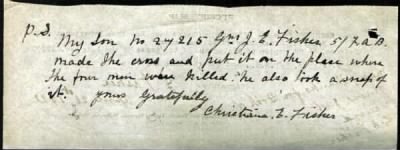 P.S.
My Son No 27215 Gnr J. E. Fisher 5/ R.a.B.
made the cross and put it on the place where
the four men were killed. he also took a snap of
it. yours Gratefully
Christiana. E. Fisher